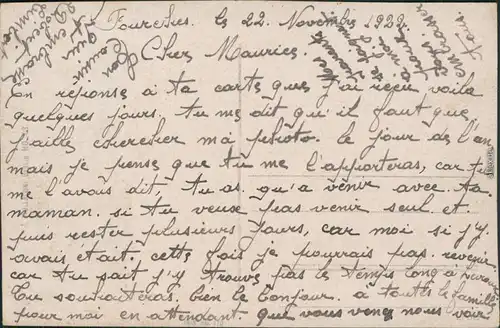 Fourches. le 22. Novembre 1922.
Cher Maurice.
En reponse à ta carte que j'ai reçu voila
quelques jours tu me dit qu'il faut que
j'aille chercher ma photo. le jour de l'an
mais je pense que tu me l'apporteras, car tu
me l'avais dit. tu as qu'a venir avec ta
maman. si tu veux pas venir seul et
puis rester plusieurs jours, car moi si j'y
avais était. cette fois je pourrais pas revenir
car tu sait j'y trouve pas le temps long à
Tu souhaiteras bien le bonjour à toute la famille
pour moi en attendant que vous venez nous voir
Ton Cousin
qui
t'embrasse